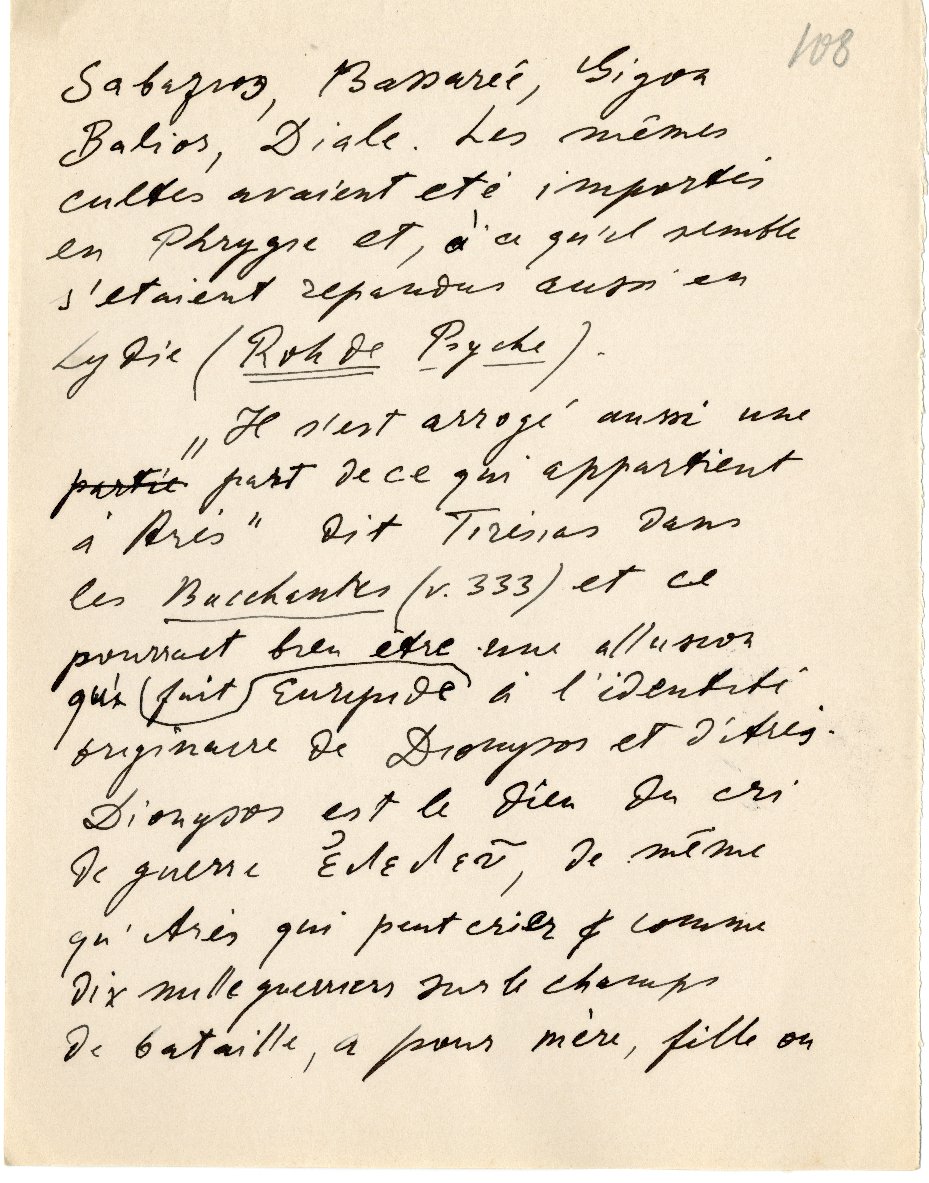 108
Sabazios, Bassareé, Gigon
Balios, Diale. Les mêmes
cultes avaient eté importés
en Phrygie et, à ce qu'il semble
s'etaient repandus aussi en
Lydie (Rohde Psyche).
„Il s'est arrogé aussi une
partie part de ce qui appartient
à Arès" dit Tirésias dans
les Bacchantes (v. 333) et ce
pourrait bien être une allusion
(fait Euripide à l'identité
originaire de Dionysos et d'Arès.
Dionysos est le dieu du cri
de guerre Ἐλελεῦ, de même
qu'Arès qui peut crier comme
dix mille guerriers sur le champs
de bataille, a pour mère, fille ou